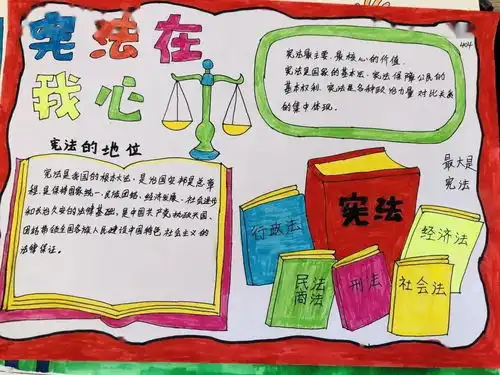 宪法在
我心
宪法最主要、最核心的价值,
宪法是国家的基本法,宪法保障公民的
基本权利,宪法是各种政治力量对比关系
的集中体现。
404
宪法的地位
宪法是我国的根本大法,是治国安邦的总章
程,是保持国家统一、民族团结、经济发展、社会进步
和长治久安的法律基础,是中国共产党执政兴国、
团结带领全国各族人民建设中国特色社会主义的
法律保证。
最大是
宪法
宪法
行政法
经济法
民法
商法
刑法
社会法